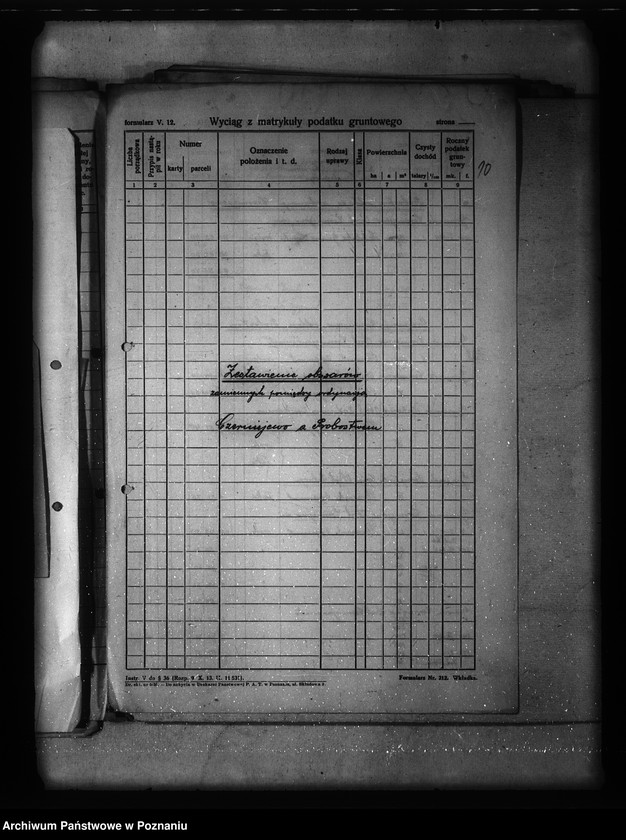 formularz V. 12. Wyciąg z matrykuły podatku gruntowego strona
Liczba porządkowa
Przypis nastąpił w roku
Numer
karty parceli
Oznaczenie
położenia i t. d.
Rodzaj
uprawy
Klasa
Powierzchnia
ha a m²
Czysty
dochód
talary 1/100
Roczny
podatek
grun-
towy
mk. f.
1 2 3 4 5 6 7 8 9
10
Zestawienie obszarów
zamiennych pomiędzy ordynacją
Czerniejewo a Probostwem
Instr. V do § 36 (Rozp. 9. X. 13. U. 11531).
Formularz Nr. 212. Wkładka.
Archiwum Państwowe w Poznaniu